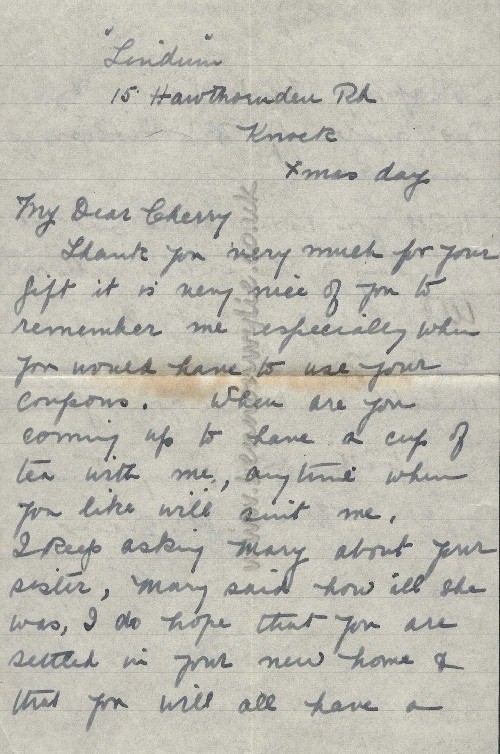 "Lindum"
15 Hawthornden Rd
Knock
Xmas day
My Dear Cherry
Thank you very much for your
gift it is very nice of you to
remember me especially when
you would have to use your
coupons. When are you
coming up to have a cup of
tea with me, anytime when
you like will suit me.
I keep asking Mary about your
sister, Mary said how ill she
was, I do hope that you are
settled in your new home &
that you will all have a